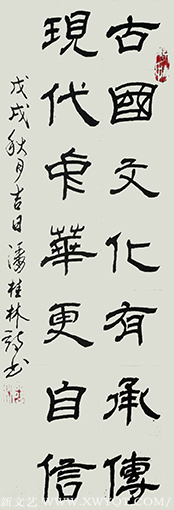 古國文化有承傳
現代中華更自信
戊戌秋月吉日潘桂林詩書
新文艺 WWW.XWYOT.COM